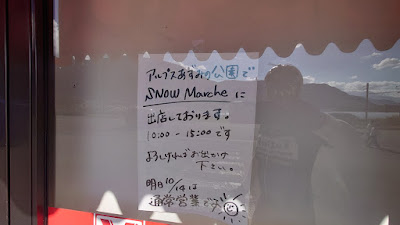 アルプスあずみの公園で
SNOW Marcheに
出店しております。
10:00 - 15:00 です
よろしければお出かけ
下さい。
明日 10/14 は
通常営業です